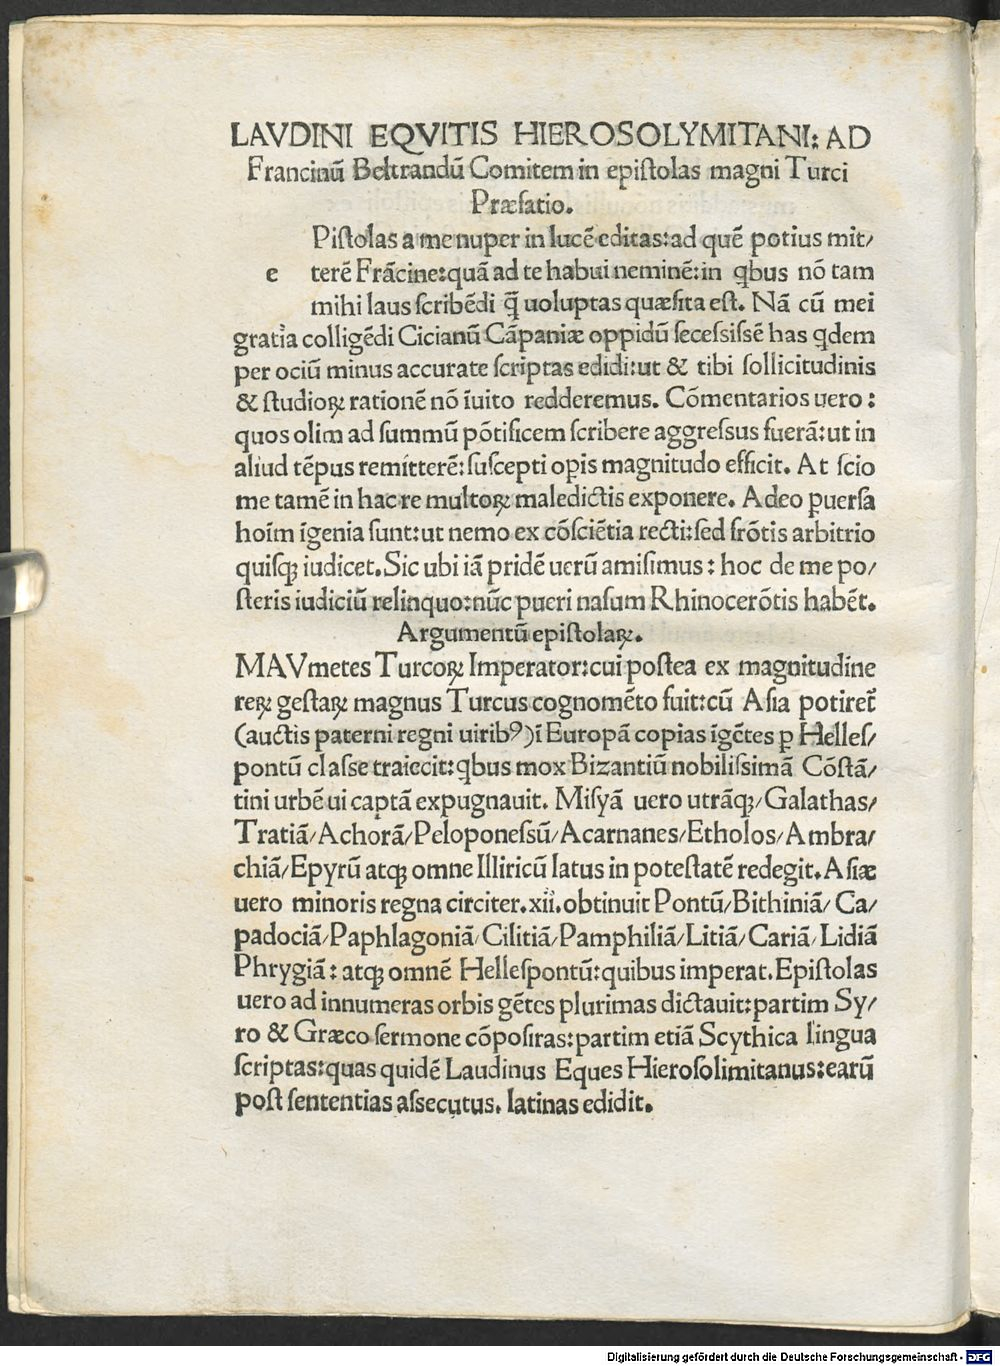 LAVDINI EQVITIS HIEROSOLYMITANI: AD
Francinū Beltrandū Comitem in epistolas magni Turci
Præfatio.
Pistolas a me nuper in lucē editas: ad quē potius mit/
e terē Frācine: quā ad te habui neminē: in qbus nō tam
mihi laus scribēdi q̄ uoluptas quæsita est. Nā cū mei
gratia colligēdi Cicianū Cāpaniæ oppidū secessissē has qdem
per ociū minus accurate scriptas edidi: ut & tibi sollicitudinis
& studioꝝ rationē nō īuito redderemus. Cōmentarios uero:
quos olim ad summū pōtificem scribere aggressus fuerā: ut in
aliud tēpus remitterē: suscepti opis magnitudo efficit. At scio
me tamē in hac re multoꝝ maledictis exponere. Adeo ꝑuersa
hoim īgenia sunt: ut nemo ex cōsciētia recti: sed frōtis arbitrio
quisqꝫ iudicet. Sic ubi iā pridē uerū amisimus: hoc de me po/
steris iudiciū relinquo: nūc pueri nasum Rhinocerōtis habēt.
Argumentū epistolaꝝ.
MAVmetes Turcoꝝ Imperator: cui postea ex magnitudine
reꝝ gestaꝝ magnus Turcus cognomēto fuit: cū Asia potiret᷑
(auctis paterni regni uiribꝰ) ī Europā copias īgētes ꝑ Helles/
pontū classe traiecit: qbus mox Bizantiū nobilissimā Cōstā/
tini urbē ui captā expugnauit. Misyā uero utrāqꝫ/ Galathas/
Tratiā/ Achorā/ Peloponessū/ Acarnanes/ Etholos/ Ambra/
chiā/ Epyrū atqꝫ omne Illiricū latus in potestatē redegit. Asiæ
uero minoris regna circiter .xii. obtinuit Pontū/ Bithiniā/ Ca/
padociā/ Paphlagoniā/ Cilitiā/ Pamphiliā/ Litiā/ Cariā/ Lidiā
Phrygiā: atqꝫ omnē Hellespontū: quibus imperat. Epistolas
uero ad innumeras orbis gētes plurimas dictauit: partim Sy/
ro & Græco sermone cōpositas: partim etiā Scythica lingua
scriptas: quas quidē Laudinus Eques Hierosolimitanus: earū
post sententias assecutus. latinas edidit.
Digitalisierung gefördert durch die Deutsche Forschungsgemeinschaft - DFG